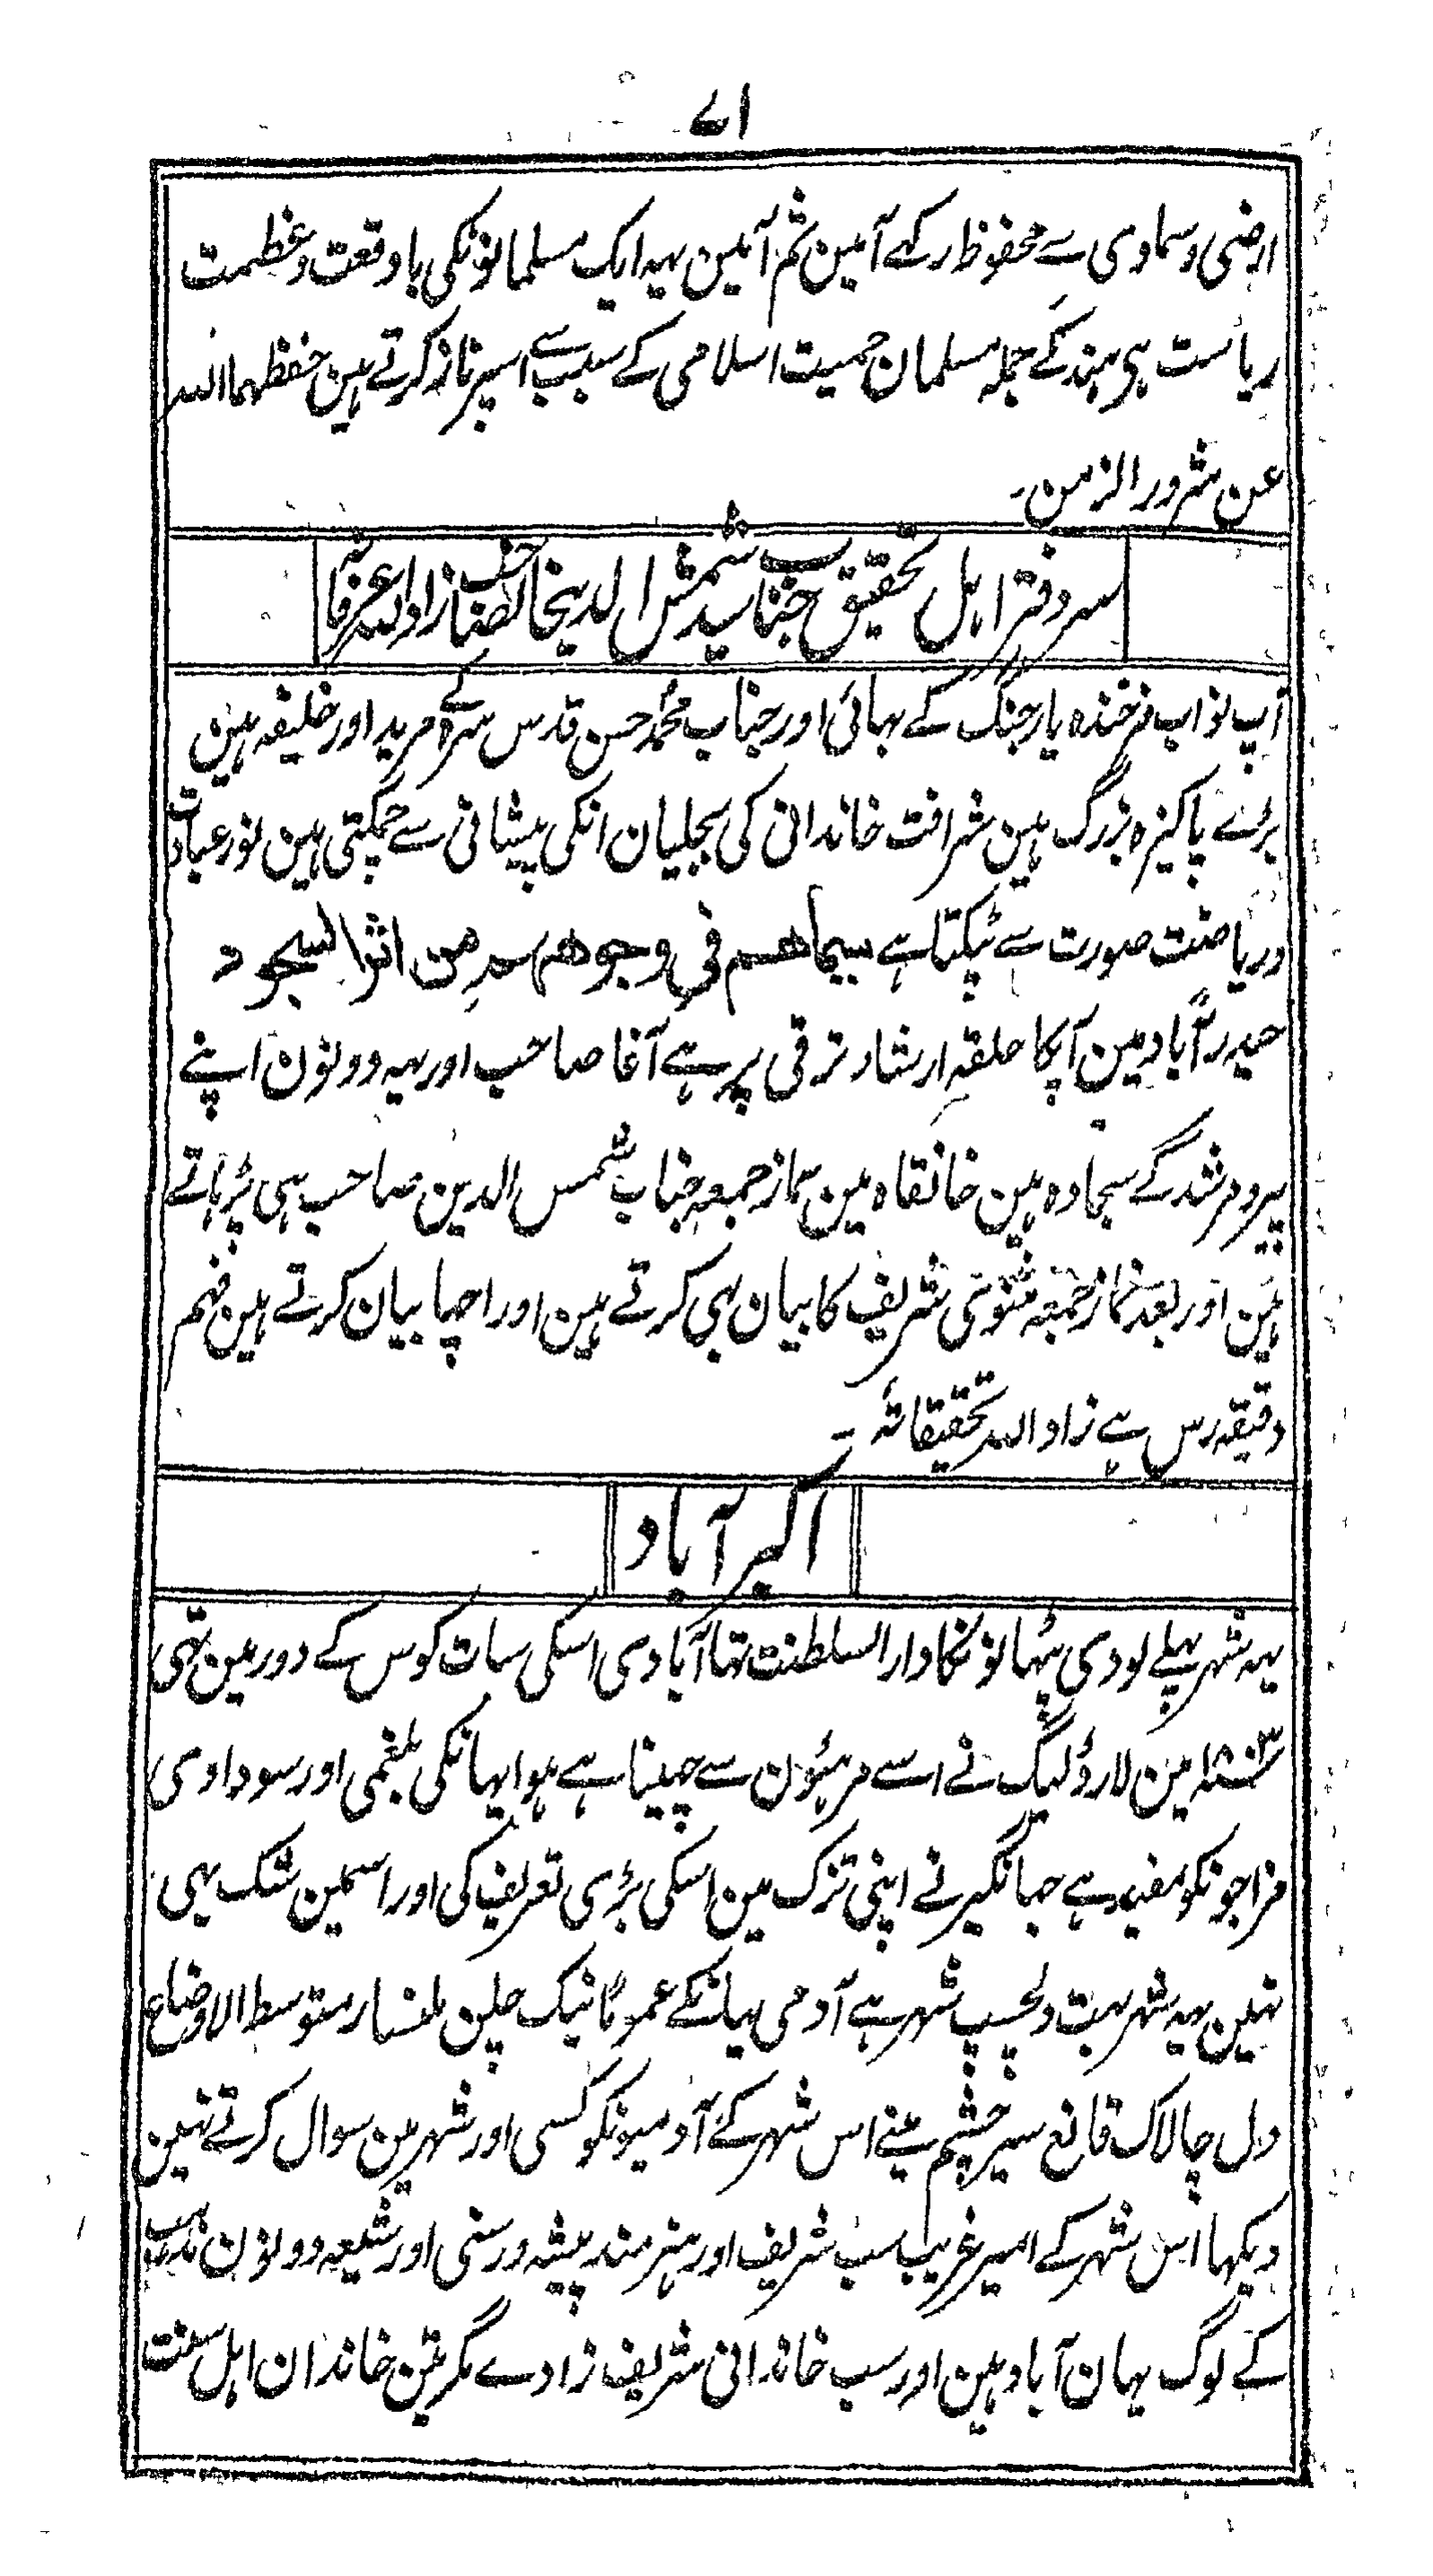 ۷۱
ارضی و سماوی سے محفوظ رکہے آمین ثم آمین یہہ ایک مسلمانونکی باوقعت و عظمت
ریاست ہی ہند کے جملہ مسلمان حمیت اسلامی کے سبب سے اسپر ناز کرتے ہین حفظہما اللہ
عن شرور الزمن۔
سردفتر اہل تحقیق جناب سید شمس الدینخانصاحب زاد اللہ عرفانہ
آپ نواب فرخندہ یار جنگ کے بہائی اور جناب محمد حسن قدس سرہ کے مرید اور خلیفہ ہین
بڑے پاکیزہ بزرگ ہین شرافت خاندانی کی بجلیان انکی پیشانی سے چمکتی ہین نور عبادت
و ریاضت صورت سے ٹپکتا ہے سیماھم فی وجوھھم من اثر السجود
حیدرآباد مین آپکا حلقہِ ارشاد ترقی پر ہے آغا صاحب اور یہہ دونون اپنے
پیر و مرشد کے سجادہ ہین خانقاہ مین نماز جمعہ جناب شمس الدین صاحب ہی پڑہاتے
ہین اور بعد نماز جمعہ مثنوی شریف کا بیان بہی کرتے ہین اور اچہا بیان کرتے ہین فہم
دقیقہ رس ہے زاد اللہ تحقیقاتہ ۔
اکبرآباد
یہہ شہر پہلے لودی پٹہانونکا دار السلطنت تہا آبادی اسکی سات کوس کے دور مین تہی
۱۸۰۳ مین لارڈ لیک نے اسے مرہٹون سے چہینا ہے ہوا یہانکی بلغمی اور سوداوی
مزاجونکو مفید ہے جہانگیر نے اپنی تزک مین اسکی بڑی تعریف کی اور اسمین شک بہی
نہین یہہ شہر بہت دلچسپ شہر ہے آدمی یہانکے عموماً نیک چلن ملنسار متوسط الاوضاع
دل چالاک قانع سیر چشم مینے اس شہر کے آدمیونکو کسی اور شہر مین سوال کرتے نہین
دیکہا اس شہر کے امیر غریب سب شریف اور ہنرمند پیشہ ور سنی اور شیعہ دونون مذہب
کے لوگ یہان آباد ہین اور سب خاندانی شریف زادے مگر تین خاندان اہل سنت